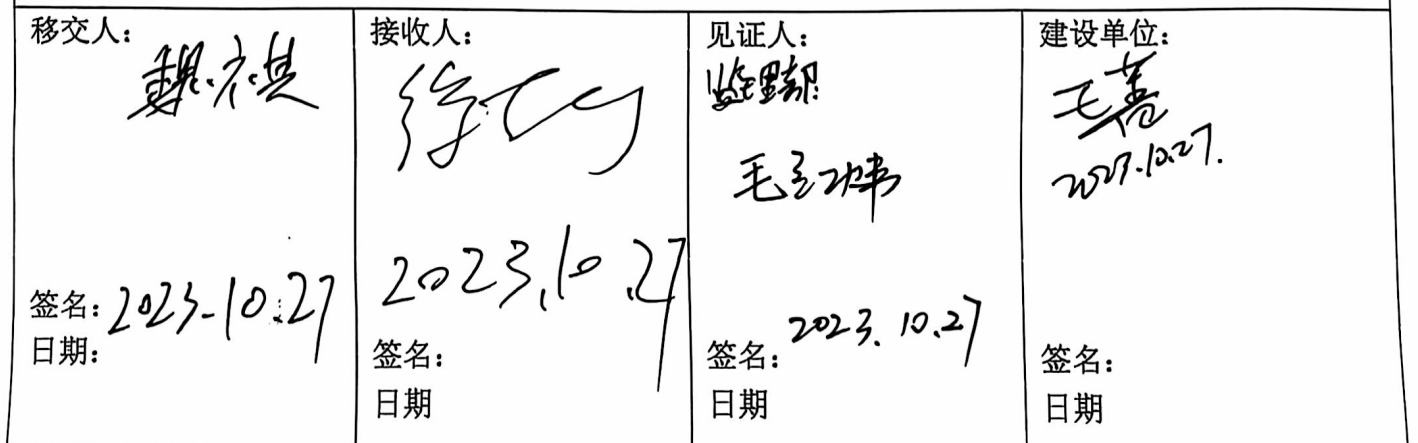 移交人:
2023.10.27
签名:
日期:
接收人:
2023.10.27
签名:
日期
见证人:
监理部:
2023.10.27
签名:
日期
建设单位:
2023.10.27.
签名:
日期